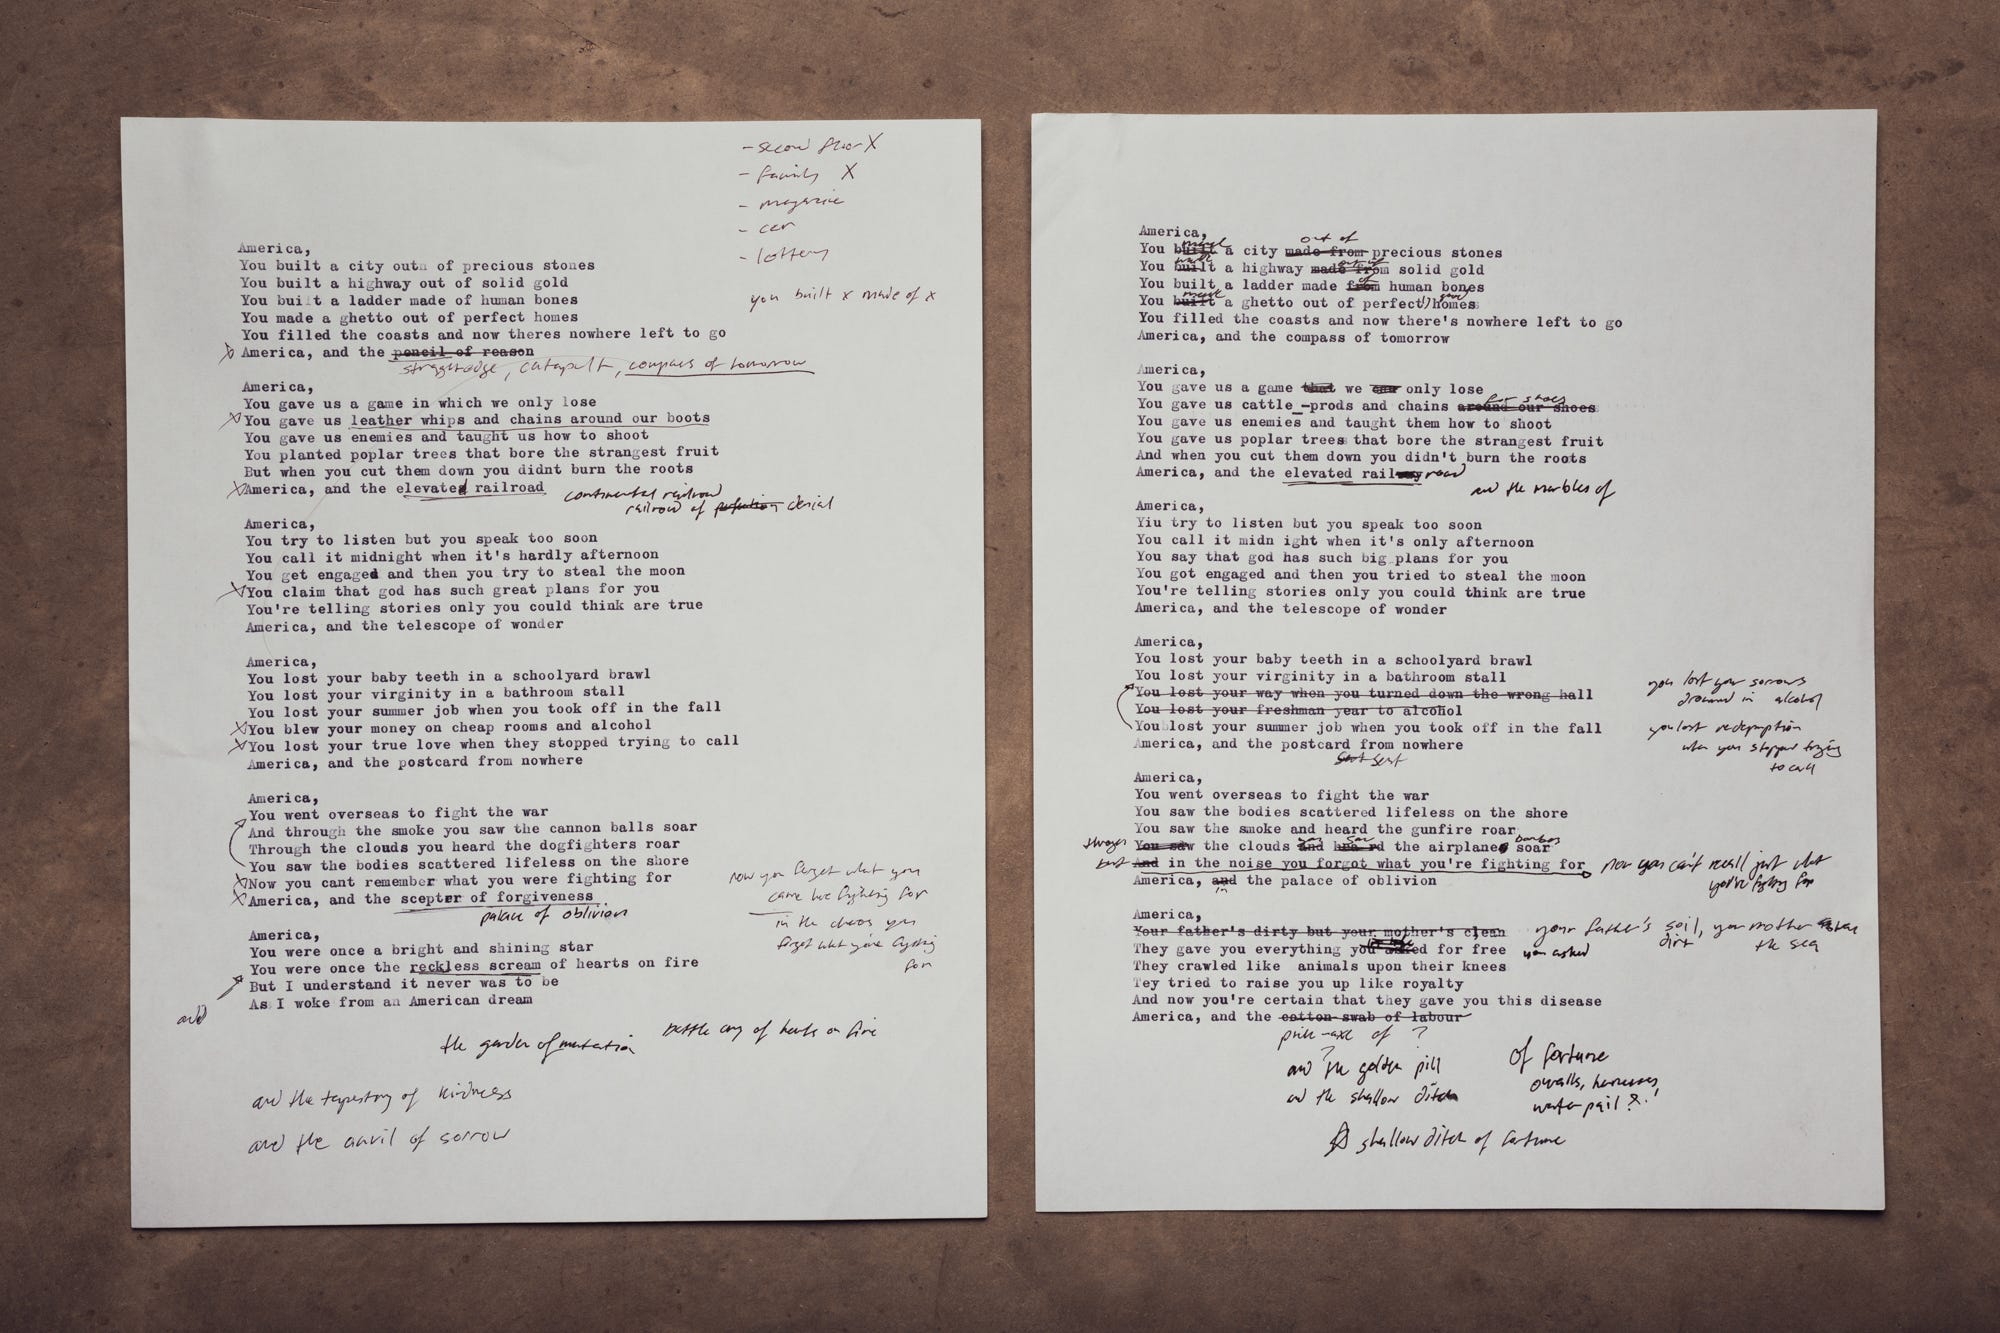 - second floor X
- family X
- magazine
- car
- lottery
you built x made of x
America,
You built a city outn of precious stones
You built a highway out of solid gold
You built a ladder made of human bones
You made a ghetto out of perfect homes
You filled the coasts and now theres nowhere left to go
America, and the pencil of reason
straightedge, catapult, compass of tomorrow
America,
You gave us a game in which we only lose
You gave us leather whips and chains around our boots
You gave us enemies and taught us how to shoot
You planted poplar trees that bore the strangest fruit
But when you cut them down you didnt burn the roots
America, and the elevated railroad
continental railroad
railroad of denial
America,
You try to listen but you speak too soon
You call it midnight when it's hardly afternoon
You get engaged and then you try to steal the moon
You claim that god has such great plans for you
You're telling stories only you could think are true
America, and the telescope of wonder
America,
You lost your baby teeth in a schoolyard brawl
You lost your virginity in a bathroom stall
You lost your summer job when you took off in the fall
You blew your money on cheap rooms and alcohol
You lost your true love when they stopped trying to call
America, and the postcard from nowhere
America,
You went overseas to fight the war
And through the smoke you saw the cannon balls soar
Through the clouds you heard the dogfighters roar
You saw the bodies scattered lifeless on the shore
Now you cant remember what you were fighting for
America, and the scepter of forgiveness
palace of oblivion
now you forget what you
came here fighting for
in the chaos you
forget what you're fighting
for
America,
You were once a bright and shining star
You were once the reckless scream of hearts on fire
But I understand it never was to be
As I woke from an American dream
and
the garden of mutation
battle cry of hearts on fire
and the tapestry of kindness
and the anvil of sorrow
America,
made out of
You built a city made from precious stones
made out of
You built a highway made from solid gold
of
You built a ladder made from human bones
made good
You built a ghetto out of perfect homes
You filled the coasts and now there's nowhere left to go
America, and the compass of tomorrow
America,
You gave us a game that we can only lose
for shoes
You gave us cattle_-prods and chains around our shoes
You gave us enemies and taught them how to shoot
You gave us poplar trees that bore the strangest fruit
And when you cut them down you didn't burn the roots
America, and the elevated railway road
and the marbles of
America,
Yiu try to listen but you speak too soon
You call it midn ight when it's only afternoon
You say that god has such big plans for you
You got engaged and then you tried to steal the moon
You're telling stories only you could think are true
America, and the telescope of wonder
America,
You lost your baby teeth in a schoolyard brawl
You lost your virginity in a bathroom stall
You lost your way when you turned down the wrong hall
You lost your freshman year to alcohol
You lost your summer job when you took off in the fall
America, and the postcard from nowhere
sent sent
you lost your sorrows
drowned in alcohol
you lost redemption
when you stopped trying
to call
America,
You went overseas to fight the war
You saw the bodies scattered lifeless on the shore
You saw the smoke and heard the gunfire roar
through you saw bombs
You saw the clouds and heard the airplanes soar
but
And in the noise you forgot what you're fighting for
now you can't recall just what
you're fighting for
America, and the palace of oblivion
in
America,
Your father's dirty but your mother's clean
your father's soil, your mother the sea
dirt
They gave you everything you asked for free
you asked
They crawled like animals upon their knees
Tey tried to raise you up like royalty
And now you're certain that they gave you this disease
America, and the cotton swab of labour
pick-axe of ?
and the golden pill
and the shallow ditch
of fortune
water pail
shallow ditch of fortune